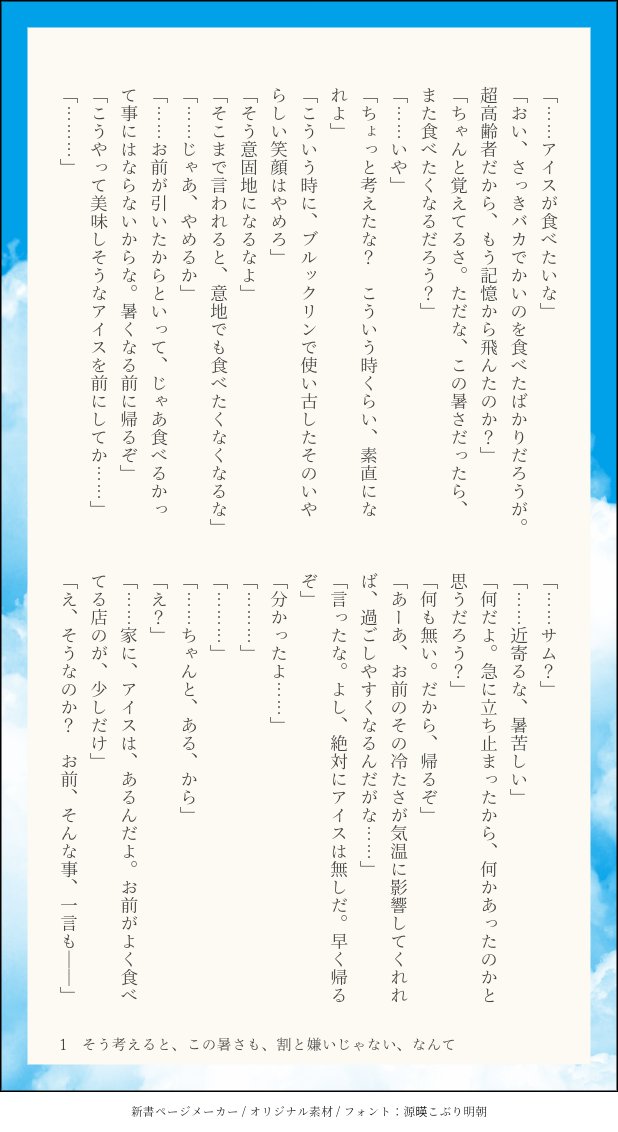 「……アイスが食べたいな」
「おい、さっきバカでかいのを食べたばかりだろうが。
超高齢者だから、もう記憶から飛んたのか？」
「ちゃんと覚えてるさ。ただな、この暑さだったら、
また食べたくなるだろう？」
「……いや」
「ちょっと考えたな？　こういう時くらい、素直にな
れよ」
「こういう時に、ブルックリンで使い古したそのいや
らしい笑顔はやめろ」
「そう意固地になるなよ」
「そこまで言われると、意地でも食べたくなくなるな」
「……じゃあ、やめるか」
「……お前が引いたからといって、じゃあ食べるかっ
て事にはならないからな。暑くなる前に帰るぞ」
「こうやって美味しそうなアイスを前にしてか……」
「………」
「……サム？」
「……近寄るな、暑苦しい」
「何だよ。急に立ち止まったから、何かあったのかと
思うだろう？」
「何も無い。だから、帰るぞ」
「あーあ、お前のその冷たさが気温に影響してくれれ
ば、過ごしやすくなるんだがな……」
「言ったな。よし、絶対にアイスは無しだ。早く帰る
ぞ」
「分かったよ……」
「………」
「………」
「……ちゃんと、ある、から」
「え？」
「……家に、アイスは、あるんだよ。お前がよく食べ
てる店のが、少しだけ」
「え、そうなのか？　お前、そんな事、一言も――」
1　そう考えると、この暑さも、割と嫌いじゃない、なんて
新書ページメーカー / オリジナル素材 / フォント：源暎こぶり明朝